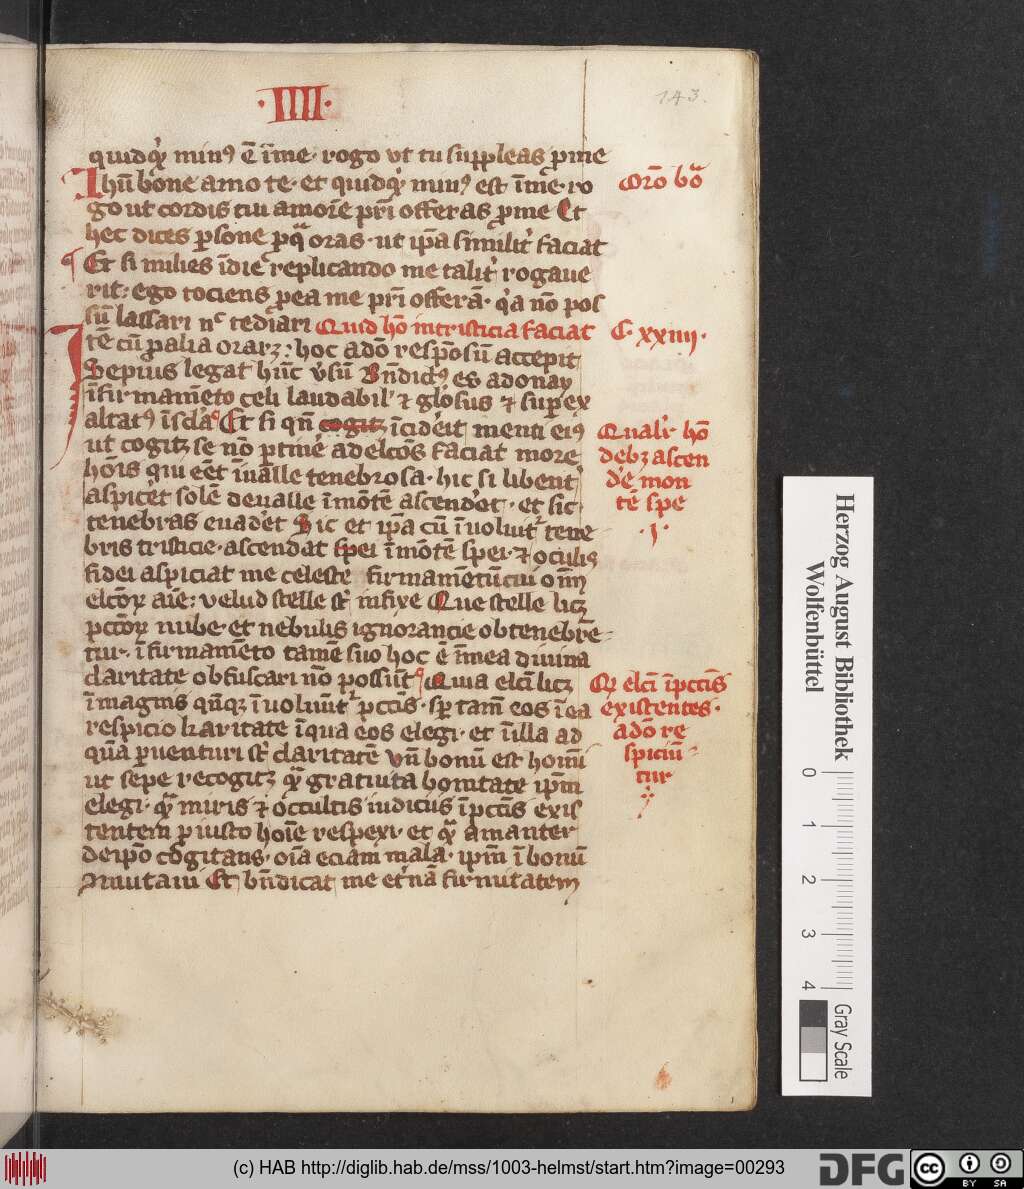 ·IIII·
143.
quidq̄ min9 ē ī me· rogo vt tu suppleas p me
Ihū bone amo te· et quidq̄ min9 est ī me· ro
go ut cordis tui amorē pr̄i offeras p me Et
hec dices ꝑsone p qͣ oras· ut ip̄a similit̄ faciat
Orō bōa
¶ Et si milies ī die replicando me talit̄ rogaue
rit· ego tociens p ea me pr̄i offerā· qͥa nō pos
sū lassari n͛c tediari Quid hō in tristicia faciat
C· xxiiij·
Itē cū p alia oraret: hoc ad ō respōsū accepit
Sepius legat hūc v̄sū Bn̄dict9 es adonay
ī firmamēto celi laudabil' ⁊ glōsus ⁊ supex
altat9 ī scl̄a Et si qn̄ cogitꝫ īcidērit menti ei9
ut cogitꝫ se nō ꝑtinē ad elcōs faciat more
hoīs qui eēt ī ualle tenebrosa· hic si libent̄
aspicēt solē de ualle ī mōtē ascendēt· et sic
tenebras euadēt Sic et ip̄a cū īuoluit͛ tene
bris tristicie· ascendat spei ī mōtē spei· ⁊ oculis
fidei aspiciat me celeste firmamētū cui om̄
elcōꝝ aīe: velud stelle st̄ infixe Que stelle licꝫ
pctōꝝ nube· et nebulis ignorancie obtenebrē-
tur· ī firmamēto tamē suo hoc ē ī mea diuina
claritate obfuscari nō possūt Quia elcī licꝫ
ī magnis qn̄qꝫ īuoluūt͛ pctīs· sp̄ tamē eos ī ea
respicio karitate ī qua eos elegi· et ī illa ad
quā ꝑuenturi st̄ claritatē Vn̄ bonū est homī
ut sepe recogitꝫ qͣ gratuita bonitate ip̄m
elegi· qͣ miris ⁊ occultis iudiciis ī pctīs exis
tentem ꝑ iusto hoīe respexi· et qͣ amanter
de ip̄o cōgitans· oīa eciam mala· ip̄m ī bonū
mutaui Et bn̄dicat me et̄nā firmitatem
Qualit̄ hō
debꝫ ascen
d̄e mon
tē spe
·i·
Qͥ elcī ī pctīs
existentes·
ad ō re
spiciū
tur
Herzog August Bibliothek
Wolfenbüttel
0 1 2 3 4
Gray Scale
(c) HAB http://diglib.hab.de/mss/1003-helmst/start.htm?image=00293
DFG
cc
BY SA